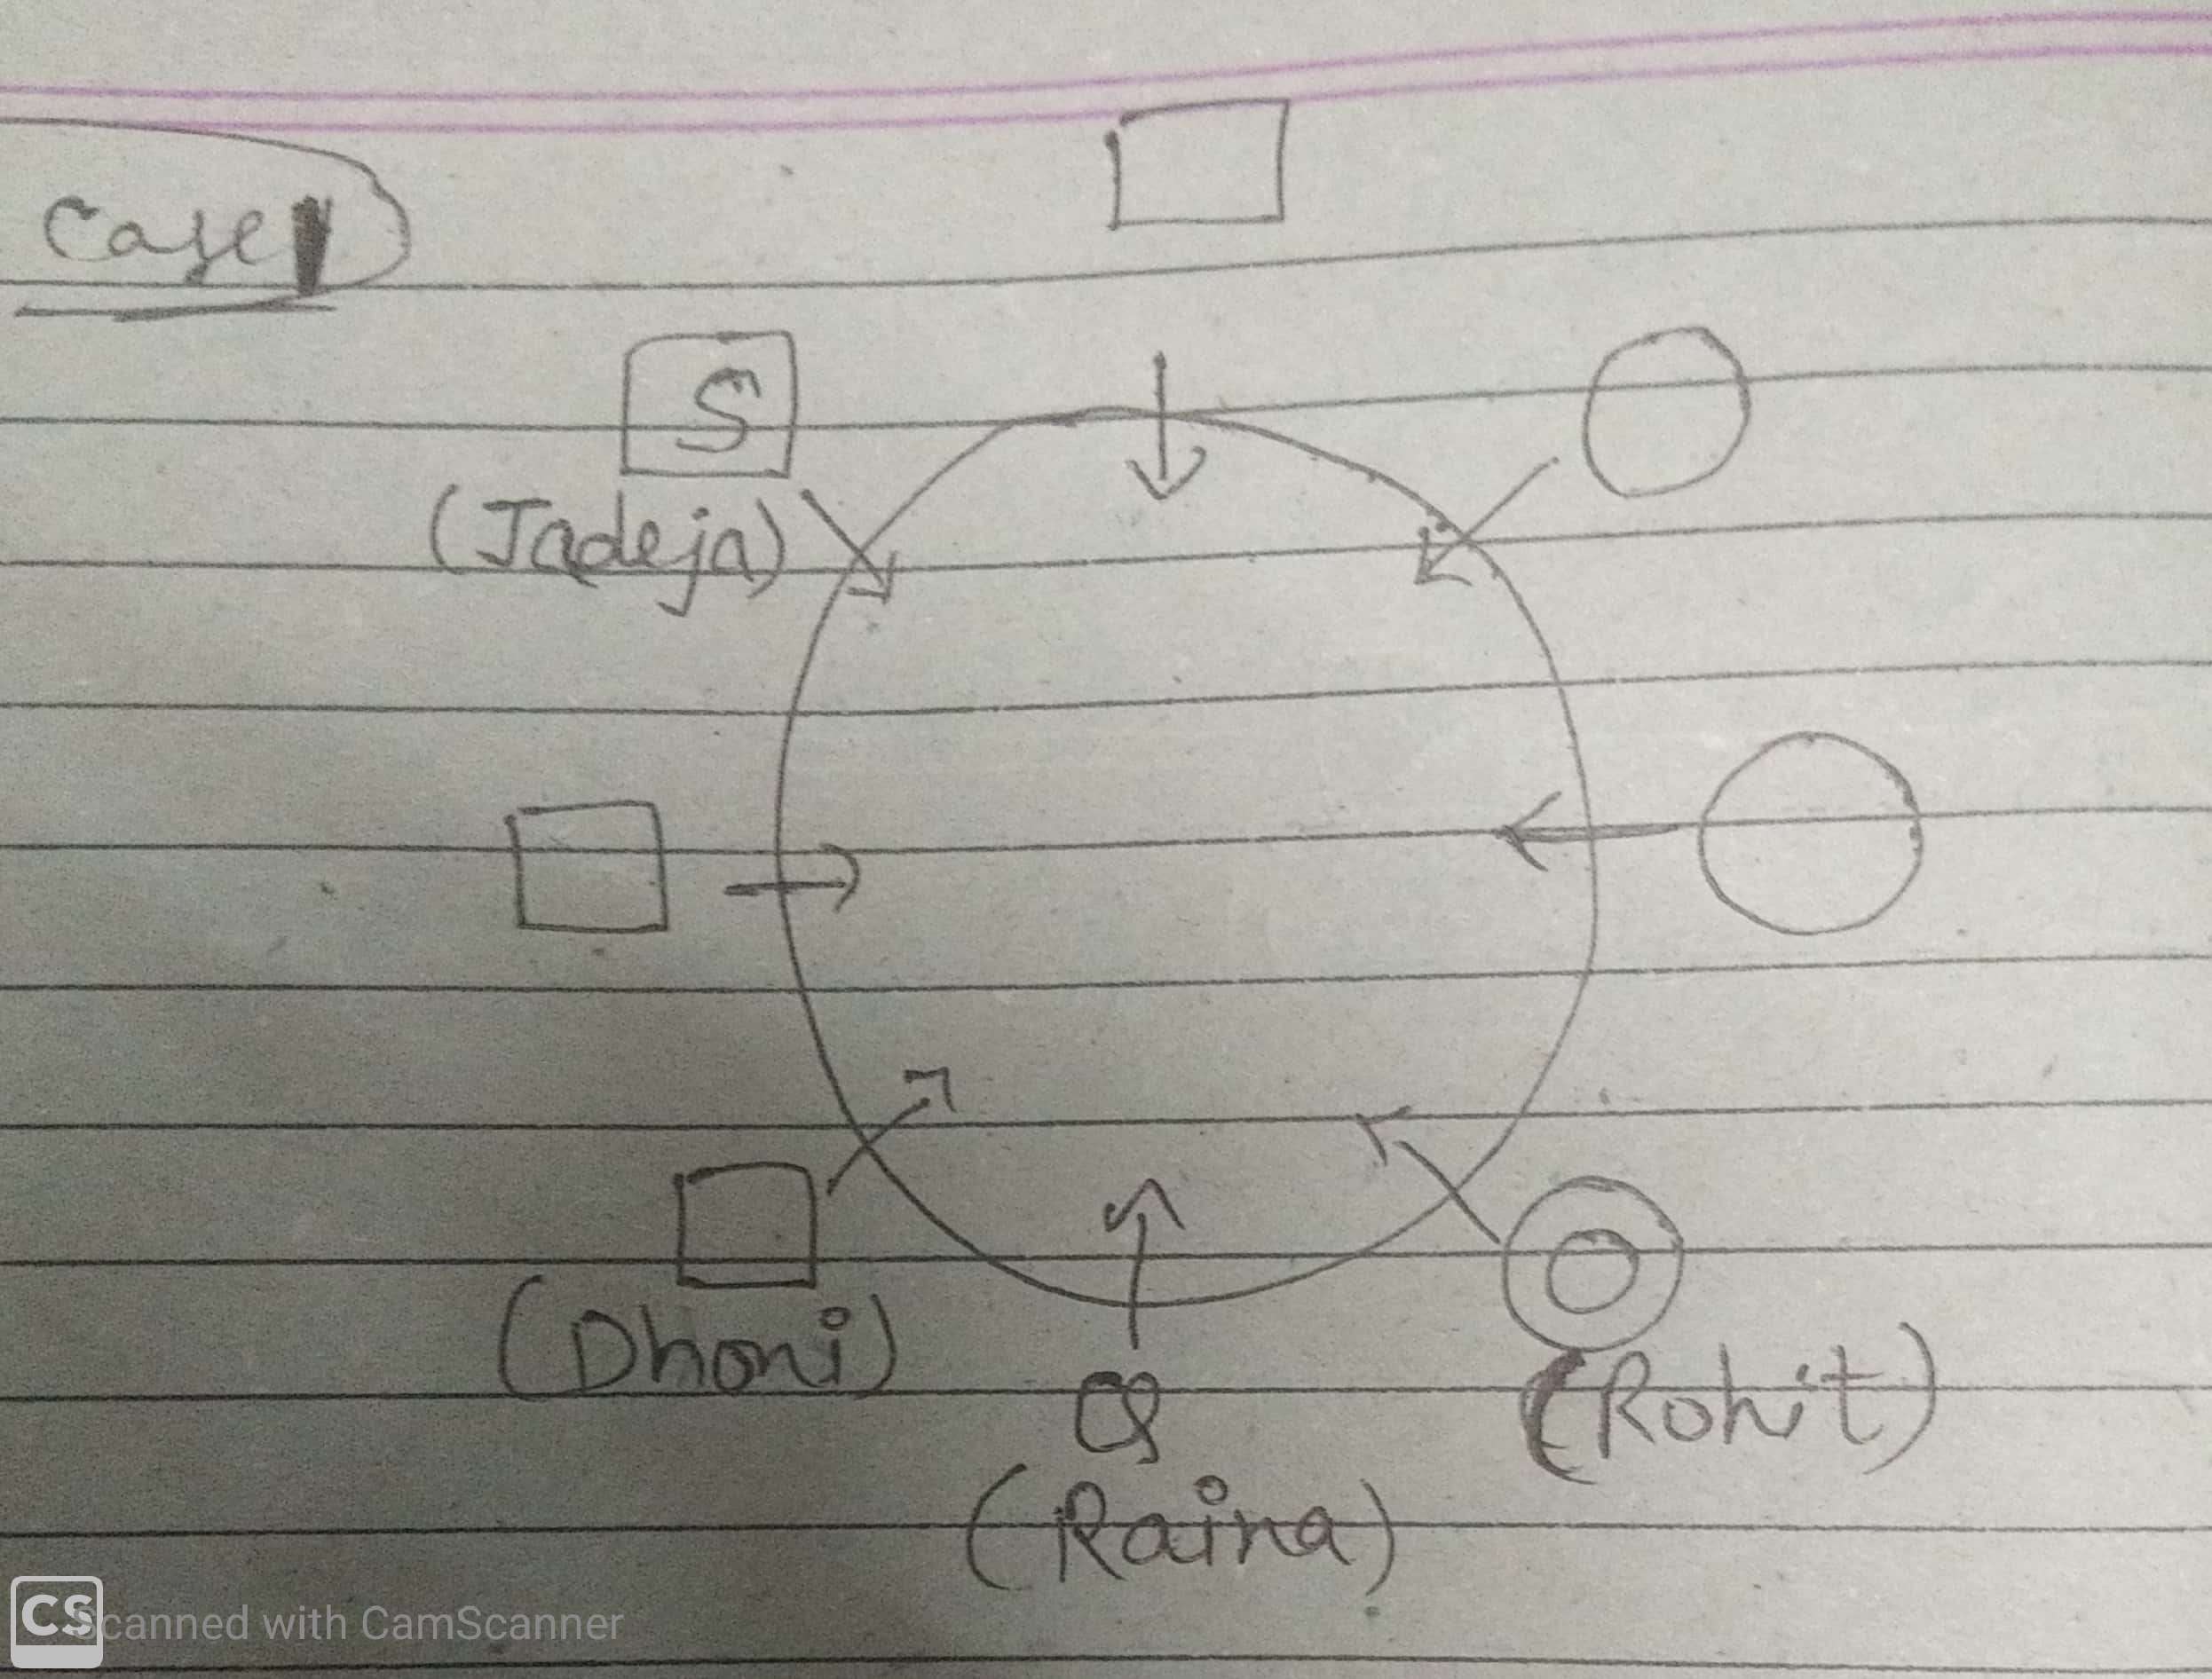 Case 1
S
(Jadeja)
(Dhoni)
(Rohit)
(Raina)
CS
Scanned with CamScanner